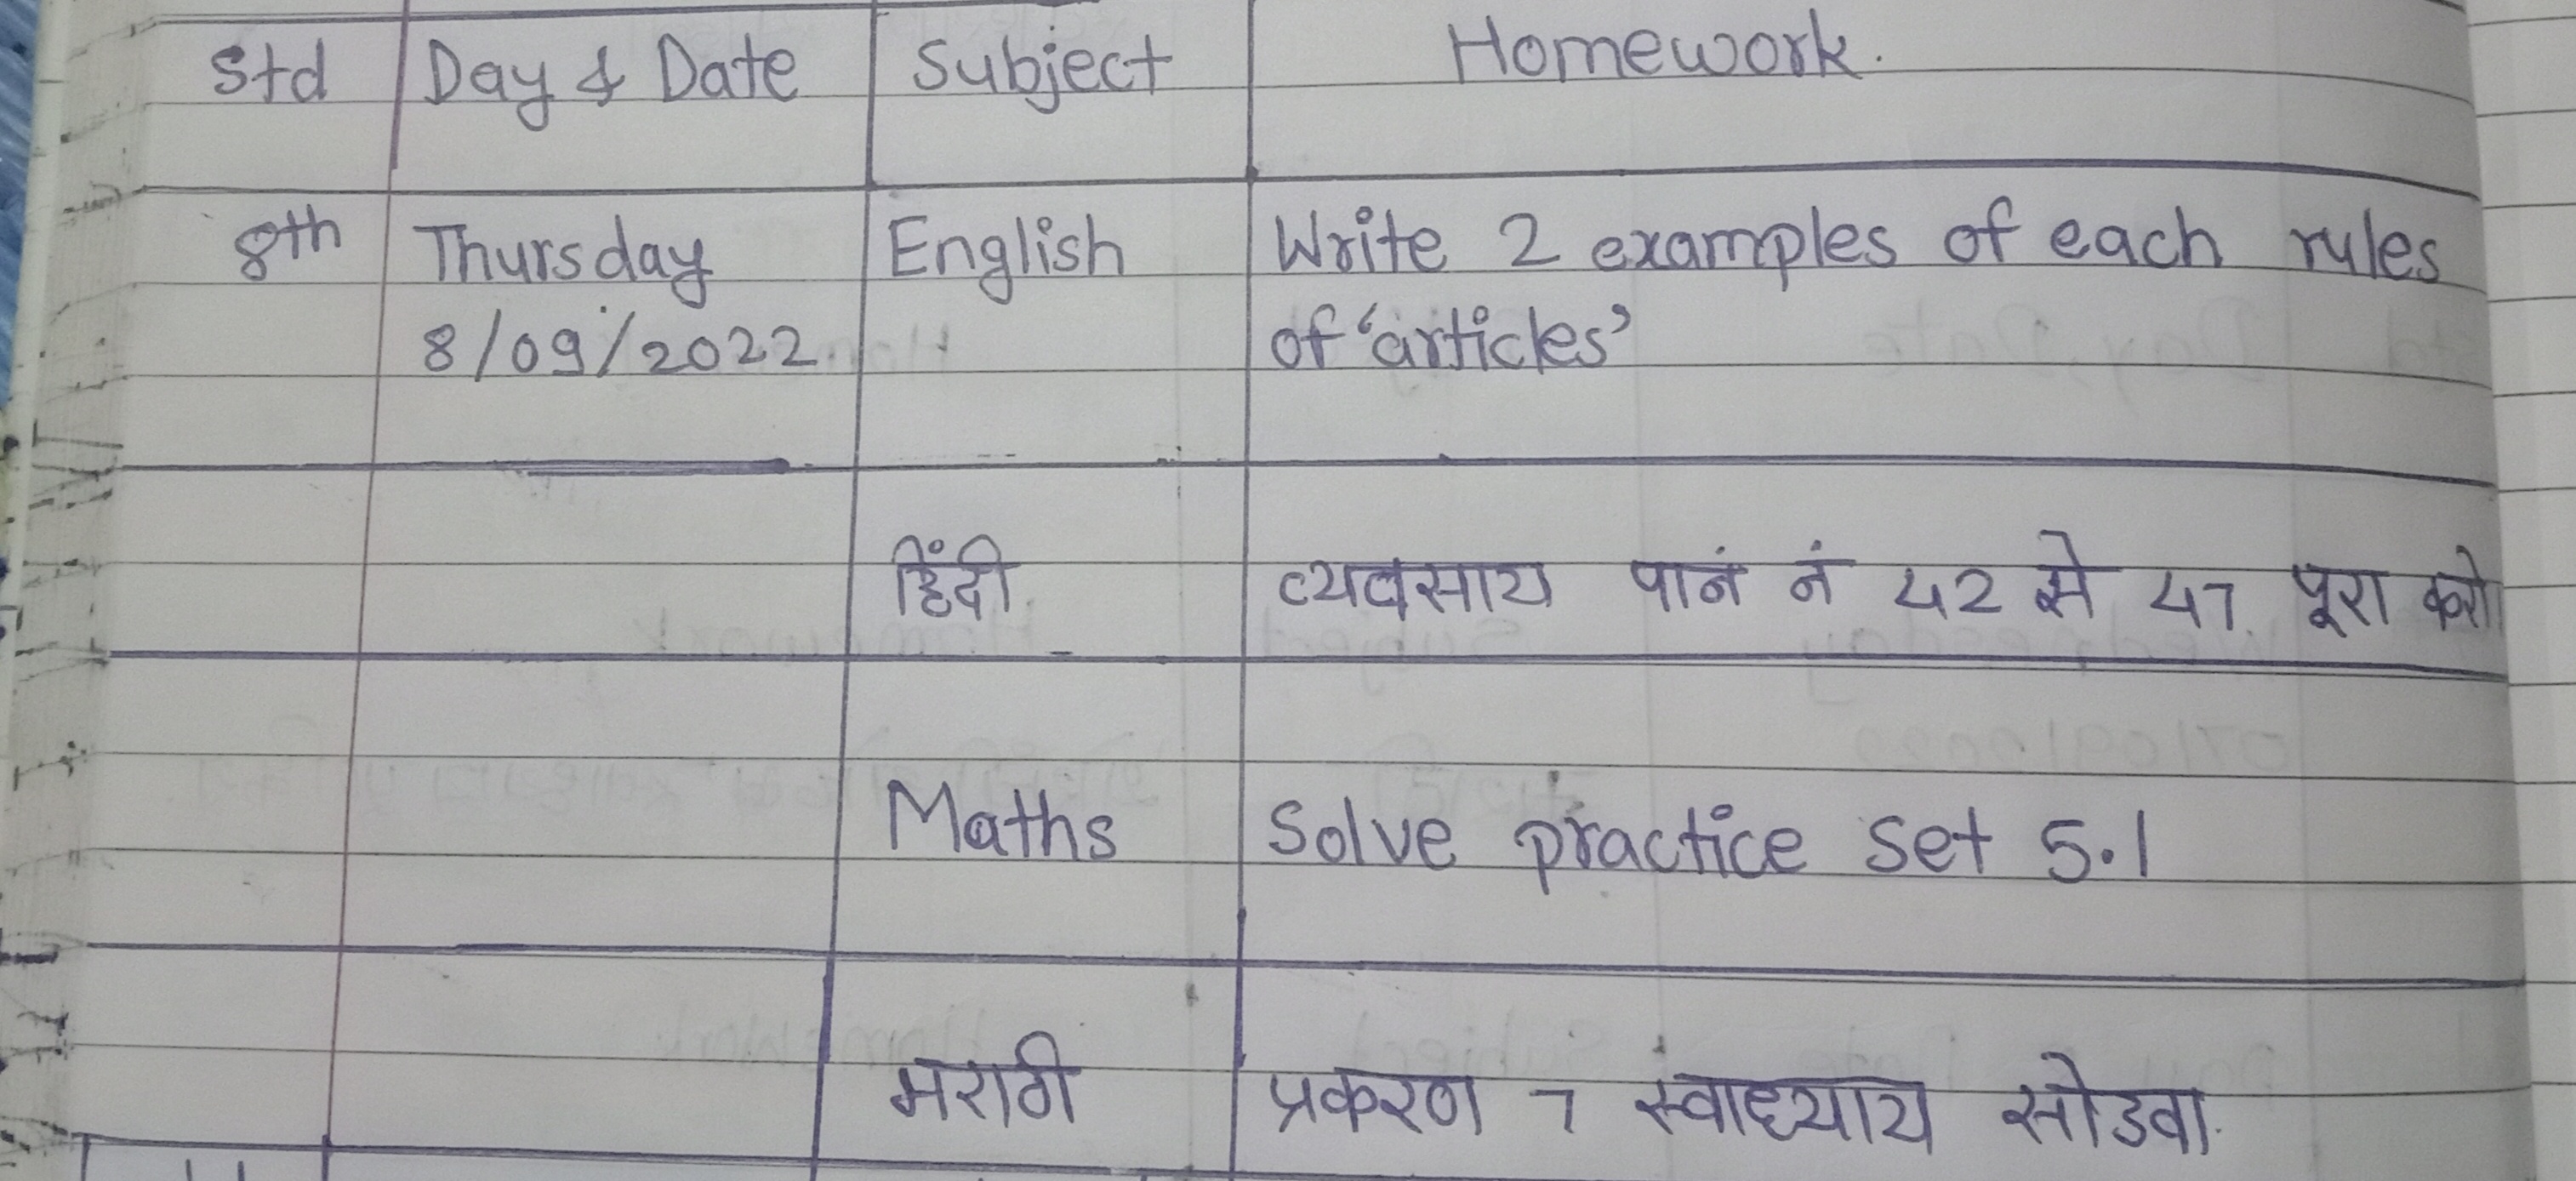 Std Day & Date Subject Homework.
8th Thursday English Write 2 examples of each rules
8/09/2022 of 'articles'
हिंदी व्यवसाय पानं नं 42 से 47 पूरा करो
Maths Solve practice set 5.1
मराठी प्रकरण 7 स्वाध्याय सोडवा.